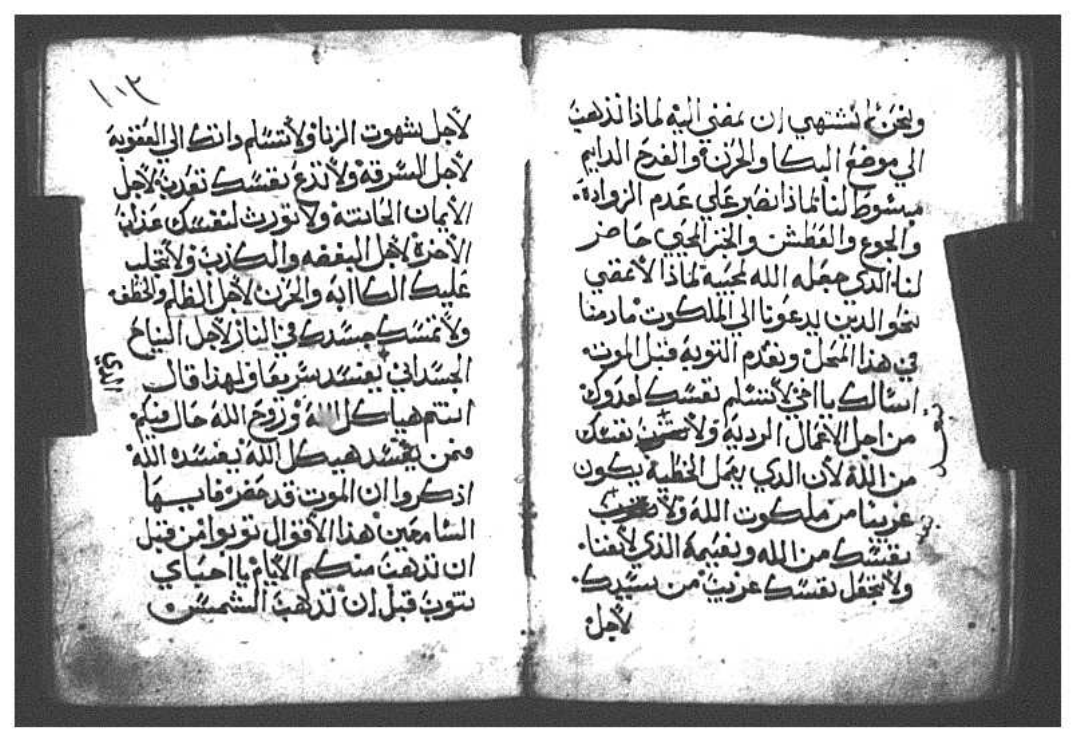 ونحن نشتهي ان نمضي اليه لماذا نذهب
الي موضع البكا والحزن والفرح الدايم
مبسوط لنا لماذا نصبر علي عدم الزوادة
والجوع والعطش والخبز الحي حاضر
لنا الدي جعله الله لمحبيه لماذا لا نمضي
نحو الدين يدعونا الي الملكوت مادمنا
في هذا المحل ونقدم التوبه قبل الموت
اسالك يا اخي لا تسلم نفسك لعدوك
من اجل الاعمال الرديه ولا نفسك
من الله لان الدي يعمل الخطية يكون
غريبا من ملكوت الله ولا
نفسك من الله ونعيمه الذي لا يفنا
ولا تجعل نفسك غريب من سيدك
لاجل
١٠٢
لاجل شهوت الزنا ولا تسلم داتك الي العقوبه
لاجل السرقه ولا تدع نفسك تعدب لاجل
الأيمان الحانته ولا تورث لنفسك عذاب
الاخرة لاجل البغضه والكذب ولا تجلب
عليك الكاابه والحزن لاجل الظلم والخطف
ولا جسدك في النار لاجل النياح
الجسداني يفسد سريعا ولهذا قال
الدي
انتم هياكل الله وروح الله حال فيكم
فمن يفسد هيكل الله يفسده الله
اذكروا ان الموت قد حضر فايها
السامعين هذا الأقوال توبوا من قبل
ان تدهب منكم الأيام يا احباي
نتوب قبل ان تدهب الشمس